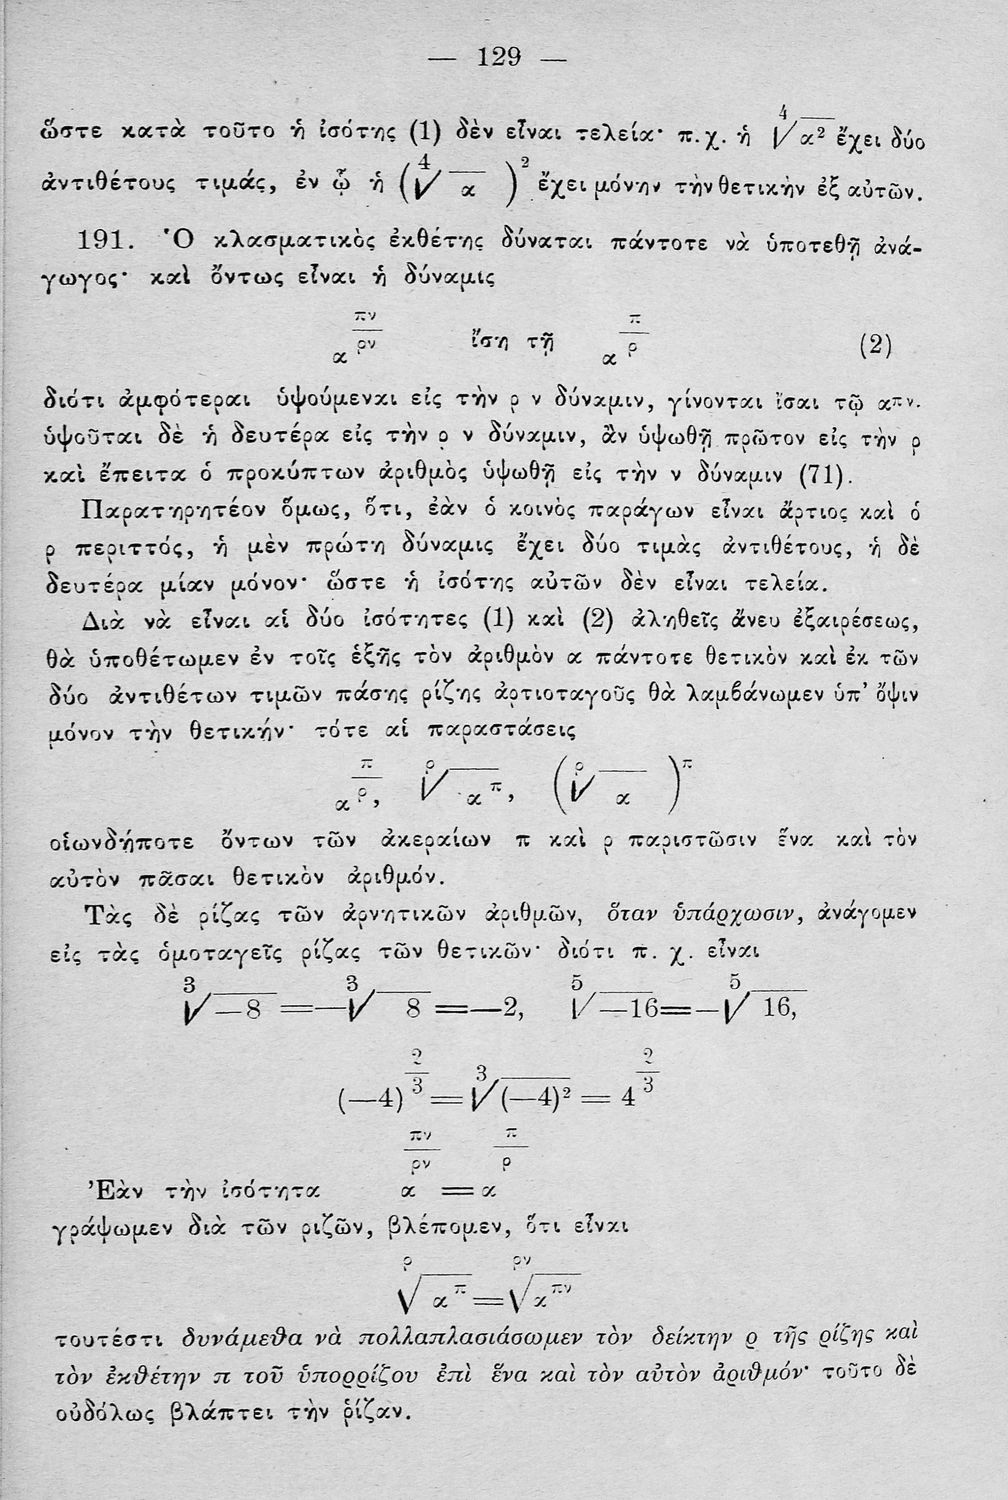 — 129 —
ὥστε κατὰ τοῦτο ἡ ἰσότης (1) δὲν εἶναι τελεία· π.χ. ἡ ∜α² ἔχει δύο
ἀντιθέτους τιμάς, ἐν ᾧ ἡ (∜α)² ἔχει μόνην τὴν θετικὴν ἐξ αὐτῶν.
191. Ὁ κλασματικὸς ἐκθέτης δύναται πάντοτε νὰ ὑποτεθῇ ἀνά-
γωγος· καὶ ὄντως εἶναι ἡ δύναμις
α^(πν/ρν) ἴση τῇ α^(π/ρ) (2)
διότι ἀμφότεραι ὑψούμεναι εἰς τὴν ρ ν δύναμιν, γίνονται ἴσαι τῷ α^(πν).
ὑψοῦται δὲ ἡ δευτέρα εἰς τὴν ρ ν δύναμιν, ἂν ὑψωθῇ πρῶτον εἰς τὴν ρ
καὶ ἔπειτα ὁ προκύπτων ἀριθμὸς ὑψωθῇ εἰς τὴν ν δύναμιν (71).
Παρατηρητέον ὅμως, ὅτι, ἐὰν ὁ κοινὸς παράγων εἶναι ἄρτιος καὶ ὁ
ρ περιττός, ἡ μὲν πρώτη δύναμις ἔχει δύο τιμὰς ἀντιθέτους, ἡ δὲ
δευτέρα μίαν μόνον· ὥστε ἡ ἰσότης αὐτῶν δὲν εἶναι τελεία.
Διὰ νὰ εἶναι αἱ δύο ἰσότητες (1) καὶ (2) ἀληθεῖς ἄνευ ἐξαιρέσεως,
θὰ ὑποθέτωμεν ἐν τοῖς ἑξῆς τὸν ἀριθμὸν α πάντοτε θετικὸν καὶ ἐκ τῶν
δύο ἀντιθέτων τιμῶν πάσης ρίζης ἀρτιοταγοῦς θὰ λαμβάνωμεν ὑπ' ὄψιν
μόνον τὴν θετικήν· τότε αἱ παραστάσεις
α^(π/ρ), ρ√α^π, (ρ√α)^π
οἱωνδήποτε ὄντων τῶν ἀκεραίων π καὶ ρ παριστῶσιν ἕνα καὶ τὸν
αὐτὸν πᾶσαι θετικὸν ἀριθμόν.
Τὰς δὲ ρίζας τῶν ἀρνητικῶν ἀριθμῶν, ὅταν ὑπάρχωσιν, ἀνάγομεν
εἰς τὰς ὁμοταγεῖς ρίζας τῶν θετικῶν· διότι π. χ. εἶναι
³√—8 =—³√8 =—2, ⁵√—16=—⁵√16,
(—4)^(2/3) = ³√(—4)² = 4^(2/3)
Ἐὰν τὴν ἰσότητα α^(πν/ρν) = α^(π/ρ)
γράψωμεν διὰ τῶν ριζῶν, βλέπομεν, ὅτι εἶναι
ρ√α^π = ρν√α^(πν)
τουτέστι δυνάμεθα νὰ πολλαπλασιάσωμεν τὸν δείκτην ρ τῆς ρίζης καὶ
τὸν ἐκθέτην π τοῦ ὑπορρίζου ἐπὶ ἕνα καὶ τὸν αὐτὸν ἀριθμόν· τοῦτο δὲ
οὐδόλως βλάπτει τὴν ῥίζαν.